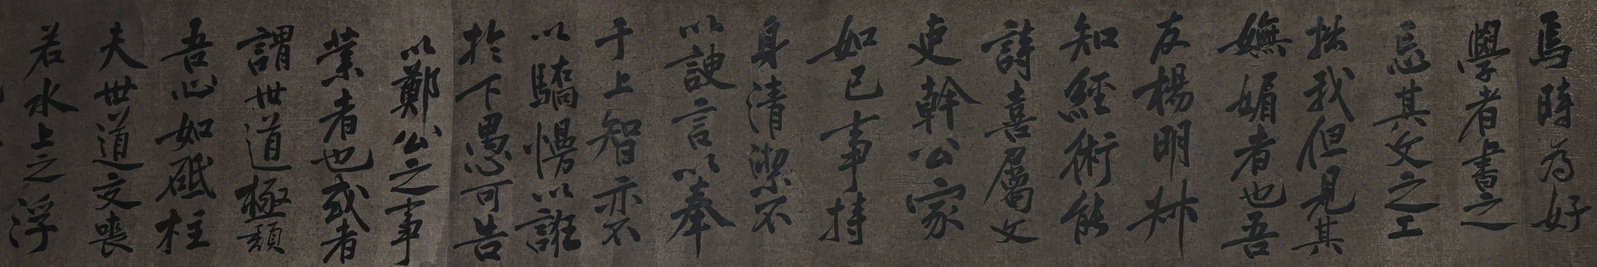 焉時為好
學者書之
忘其文之工
拙我但見其
嫵媚者也吾
友楊明叔
知經術能
詩喜屬文
吏幹公家
如已事持
身清潔不
以諛言以奉
于上智亦不
以驕慢以誑
於下愚可告
以鄭公之事
業者也或者
謂世道極頹
吾心如砥柱
夫世道交喪
若水上之浮